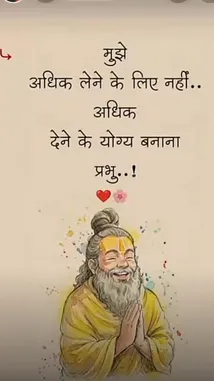 मुझे
अधिक लेने के लिए नहीं..
अधिक
देने के योग्य बनाना
प्रभु..!